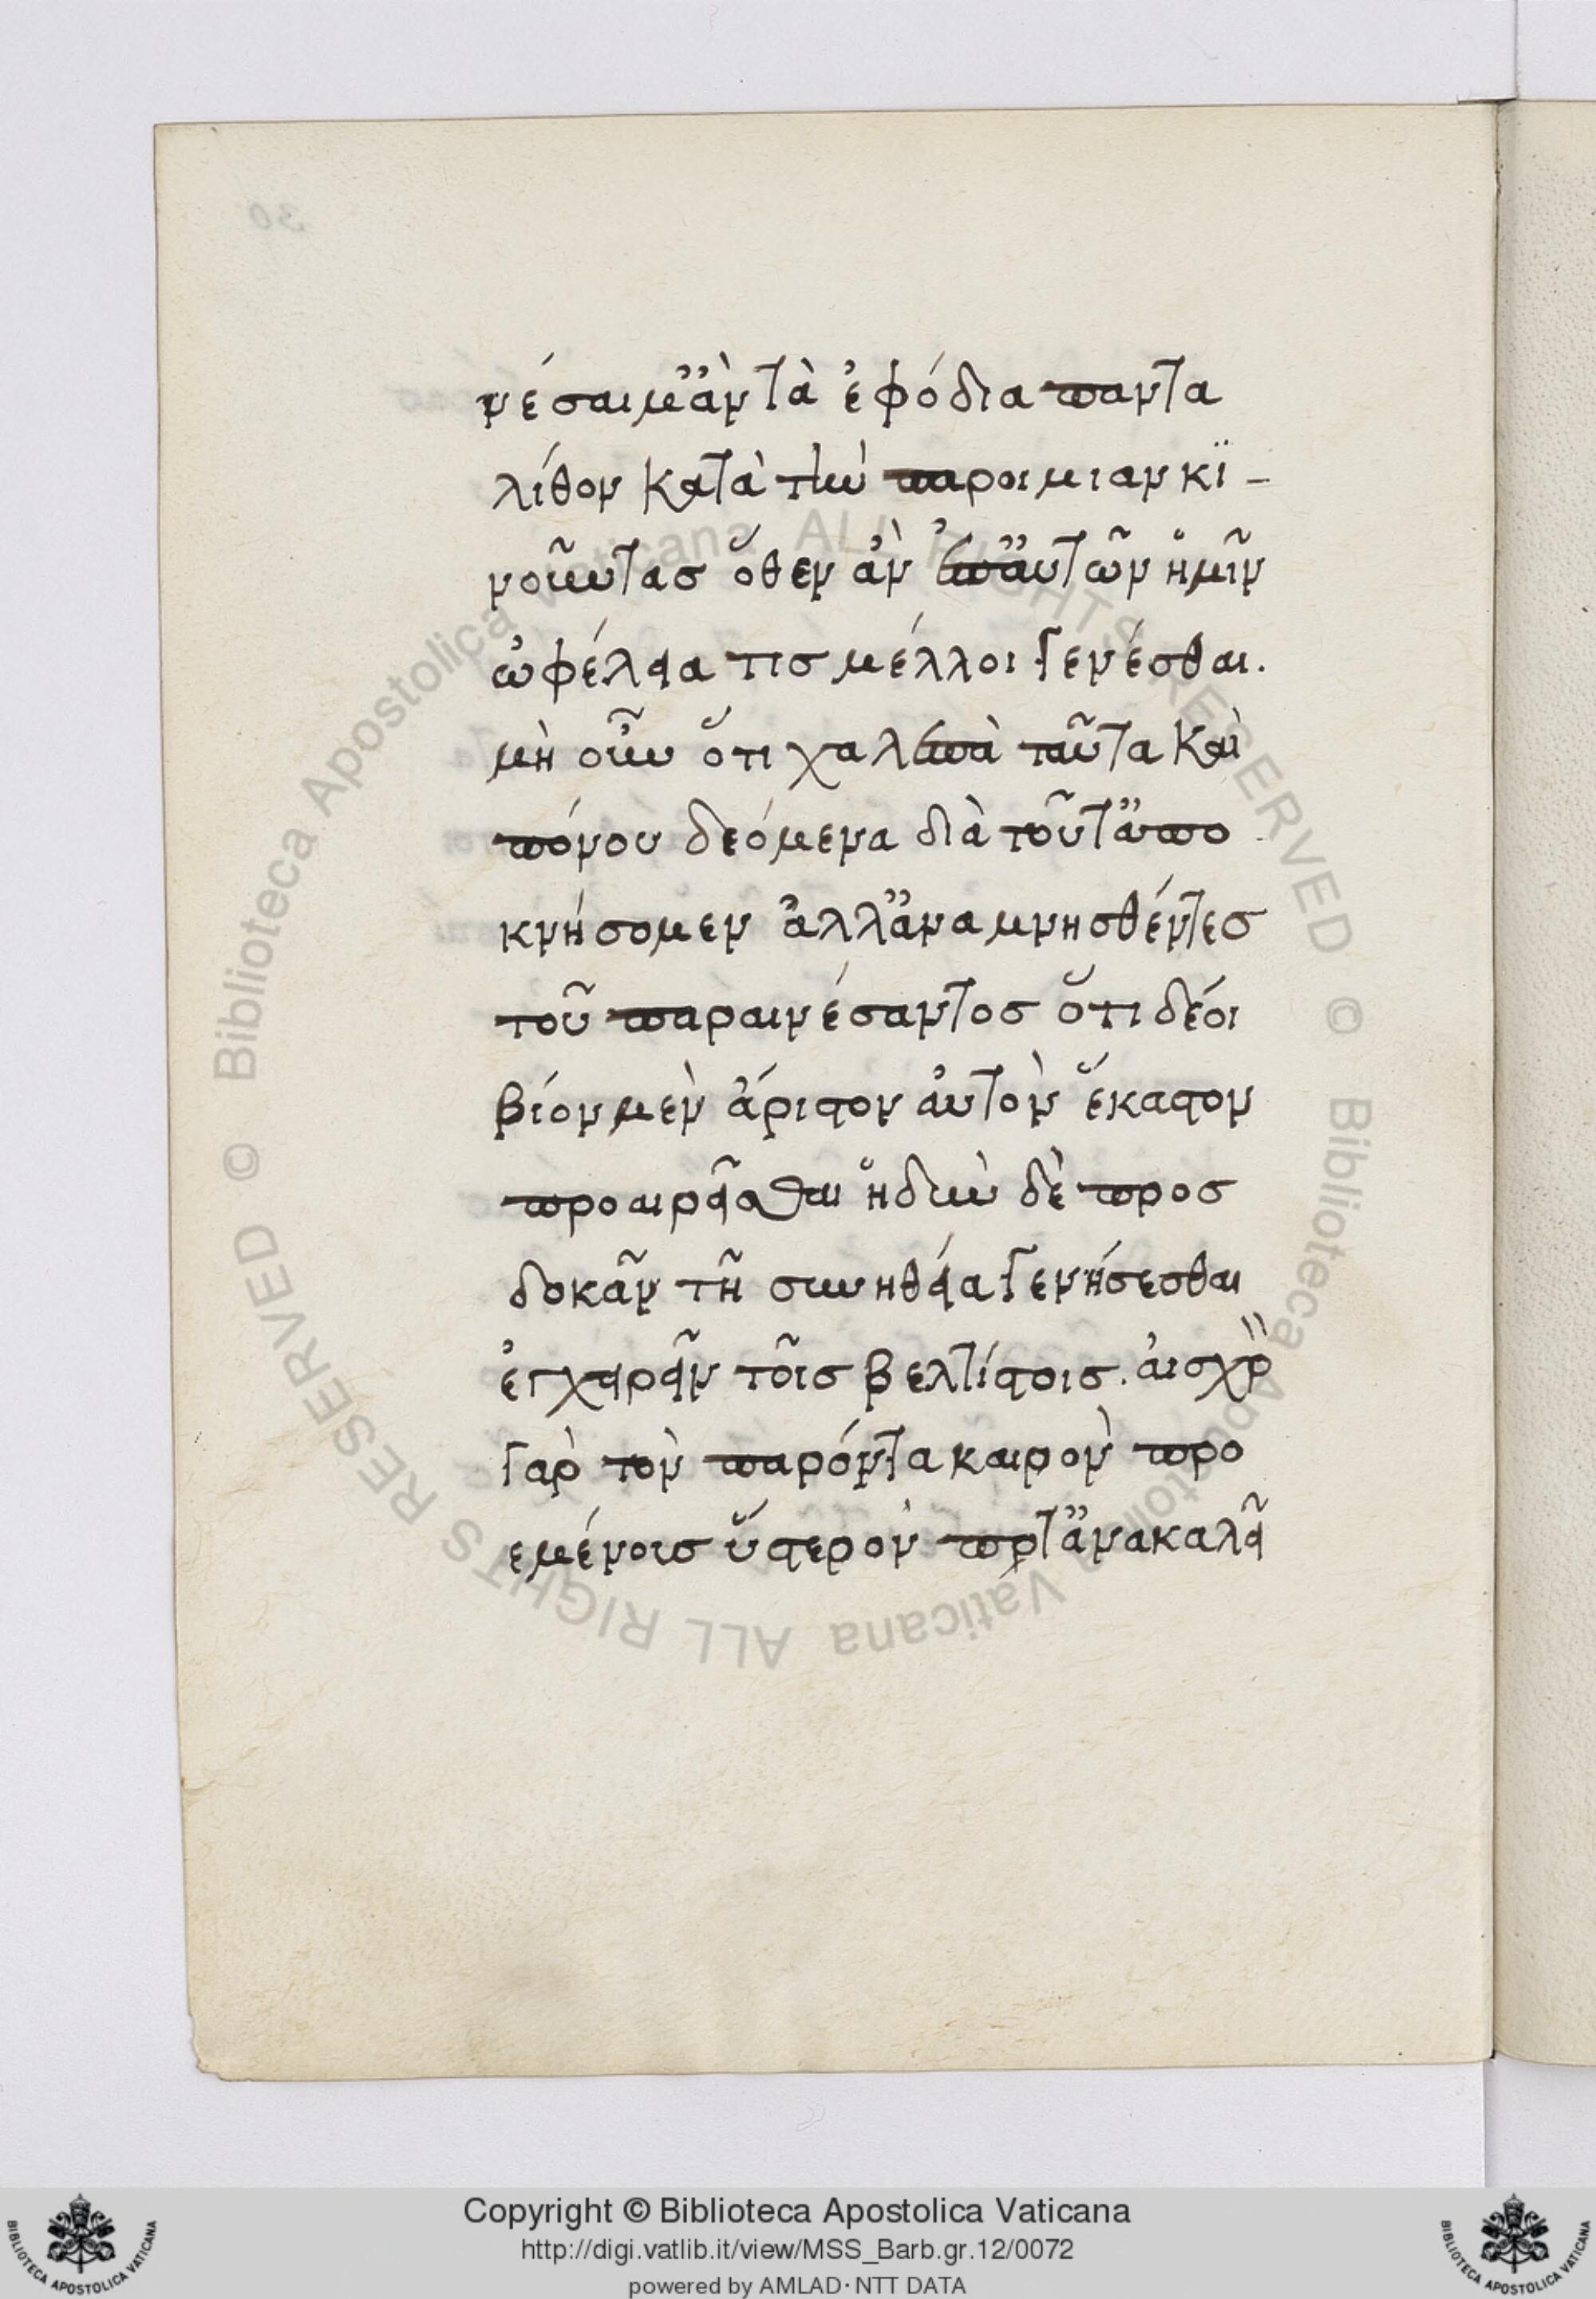 νέσαιμ' ἂν τὰ ἐφόδια παντα
λίθον κατὰ τὴν παροιμιαν κϊ-
νοῦντας ὅθεν ἂν ἐπ' αὐτῶν ἡμῖν
ὠφέλεια τις μέλλοι γενέσθαι.
μὴ οὖν ὅτι χαλεπὰ ταῦτα καὶ
πόνου δεόμενα διὰ τοῦτ' ἀπο
κνήσομεν ἀλλ' ἀναμνησθέντες
τοῦ παραινέσαντος ὅτι δέοι
βίον μεν ἄριστον αὐτὸν ἕκαστον
προαιρεῖσθαι ἡδὺν δὲ προσ
δοκᾶν τῆ συνηθεία γενήσεσθαι
ἐγχειρεῖν τοῖς βελτίστοις. αἰσχρὸν
γαρ τὸν παρόντα καιρὸν προ
εμένοις ὕστερον ποτ' ἀνακαλεῖ
Biblioteca Apostolica Vaticana ALL RIGHTS RESERVED © Biblioteca Apostolica Vaticana ALL RIGHTS RESERVED ©
30
Copyright © Biblioteca Apostolica Vaticana
http://digi.vatlib.it/view/MSS_Barb.gr.12/0072
powered by AMLAD·NTT DATA
BIBLIOTECA APOSTOLICA VATICANA
BIBLIOTECA APOSTOLICA VATICANA